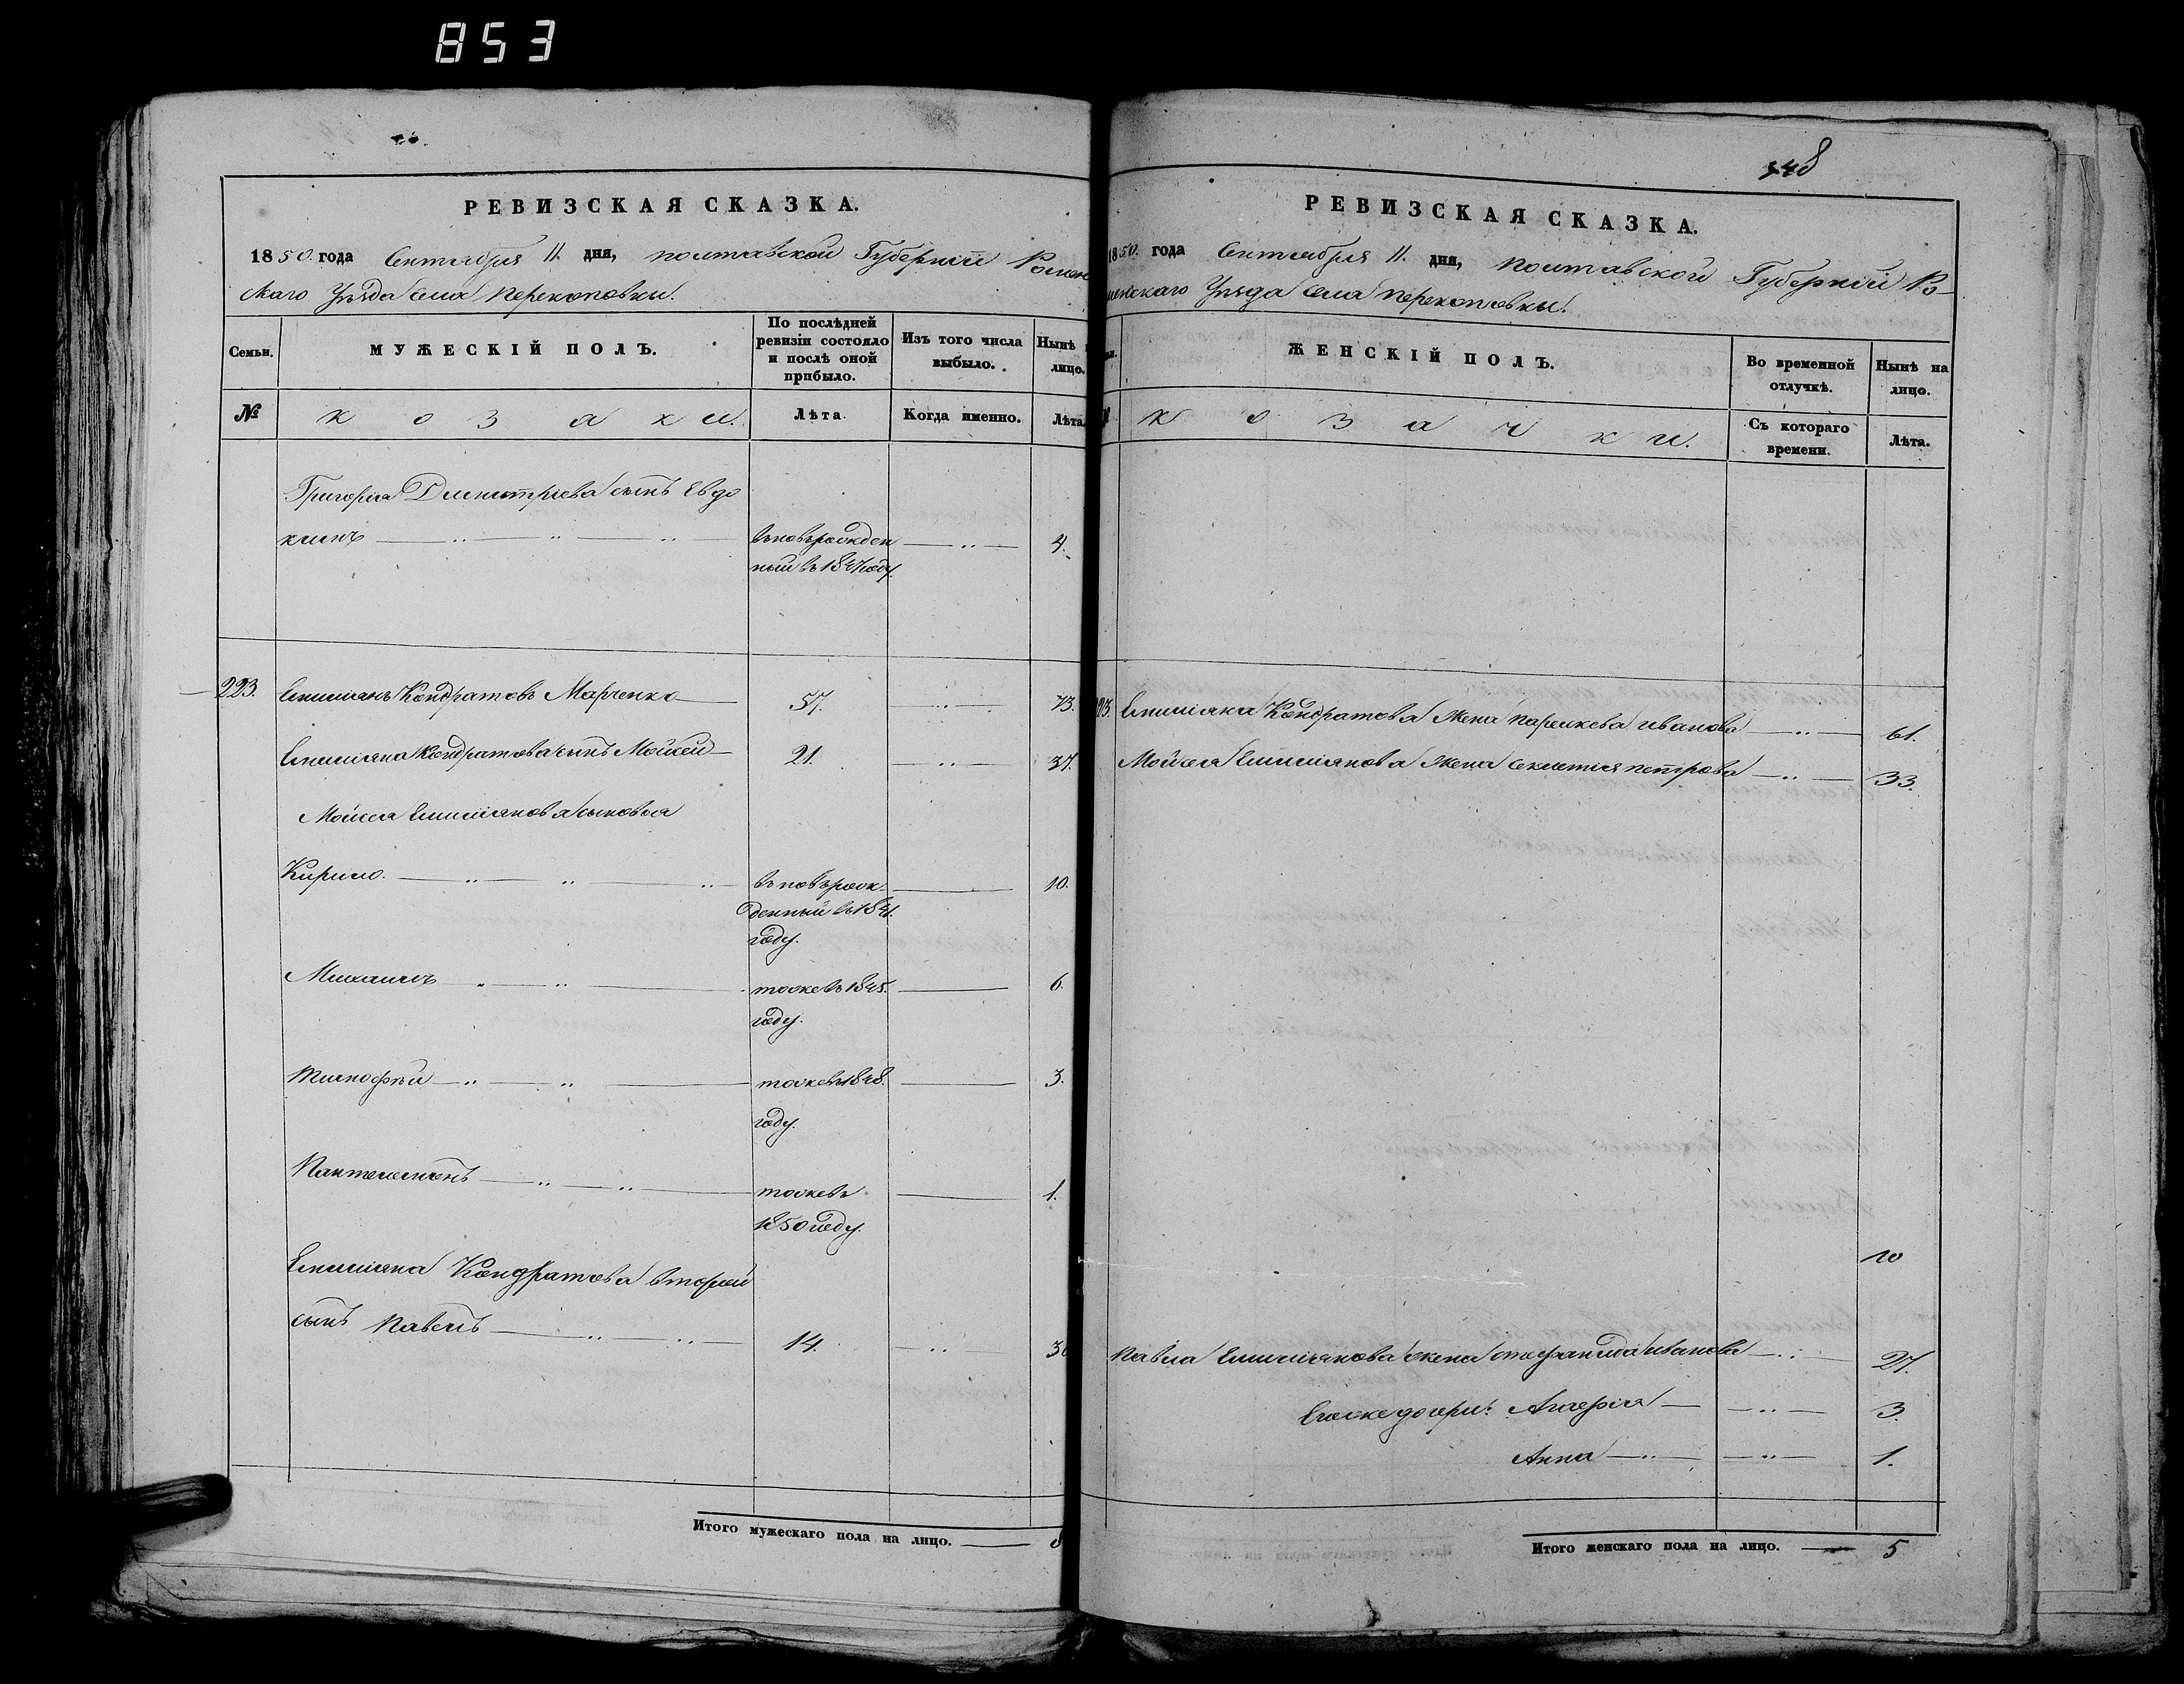 853
РЕВИЗСКАЯ СКАЗКА.
1850. года Сентября 11. дня, Полтавской Губерніи Ромен
скаго Уѣзда села Перекоповки.
Семьи.
МУЖЕСКІЙ ПОЛЪ.
По послѣдней ревизіи состояло и послѣ оной прибыло.
Изъ того числа выбыло.
Нынѣ лицо.
№
козаки.
Лѣта
Когда именно.
Лѣта
Григорія Димитріева сынъ Евдо
кимъ
вновьрожден
ный въ 1847 году.
4.
223. Емиліянъ Кондратовъ Марченко 57. 73.
Емиліяна Кондратова сынъ Мойсей 21. 37.
Мойсея Емиліянова сыновья
Кирило. вновьрож-
денный въ 1841.
году.
10.
Михаилъ тожевъ 1845.
году.
6.
Тимофѣй тожевъ 1848.
году.
3.
Пантелемонъ тожевъ
1850 году.
1.
Емиліяна Кондратова второй
сынъ Павелъ 14. 30
Итого мужескаго пола на лицо. 8
348
РЕВИЗСКАЯ СКАЗКА.
1850. года Сентября 11. дня, Полтавской Губерніи Ро-
менскаго Уѣзда села Перекоповки.
ЖЕНСКІЙ ПОЛЪ.
Во временной отлучкѣ.
Нынѣ на лицо.
козачки.
Съ котораго времени.
Лѣта.
223. Емиліяна Кондратова жена Парескева Иванова 61.
Мойсея Емиліянова жена Секлетія Петрова 33.
10
Павла Емиліянова жена Стефанида Иванова 27.
Егоже дочери: 3.
Анна 1.
Итого женскаго пола на лицо. 5